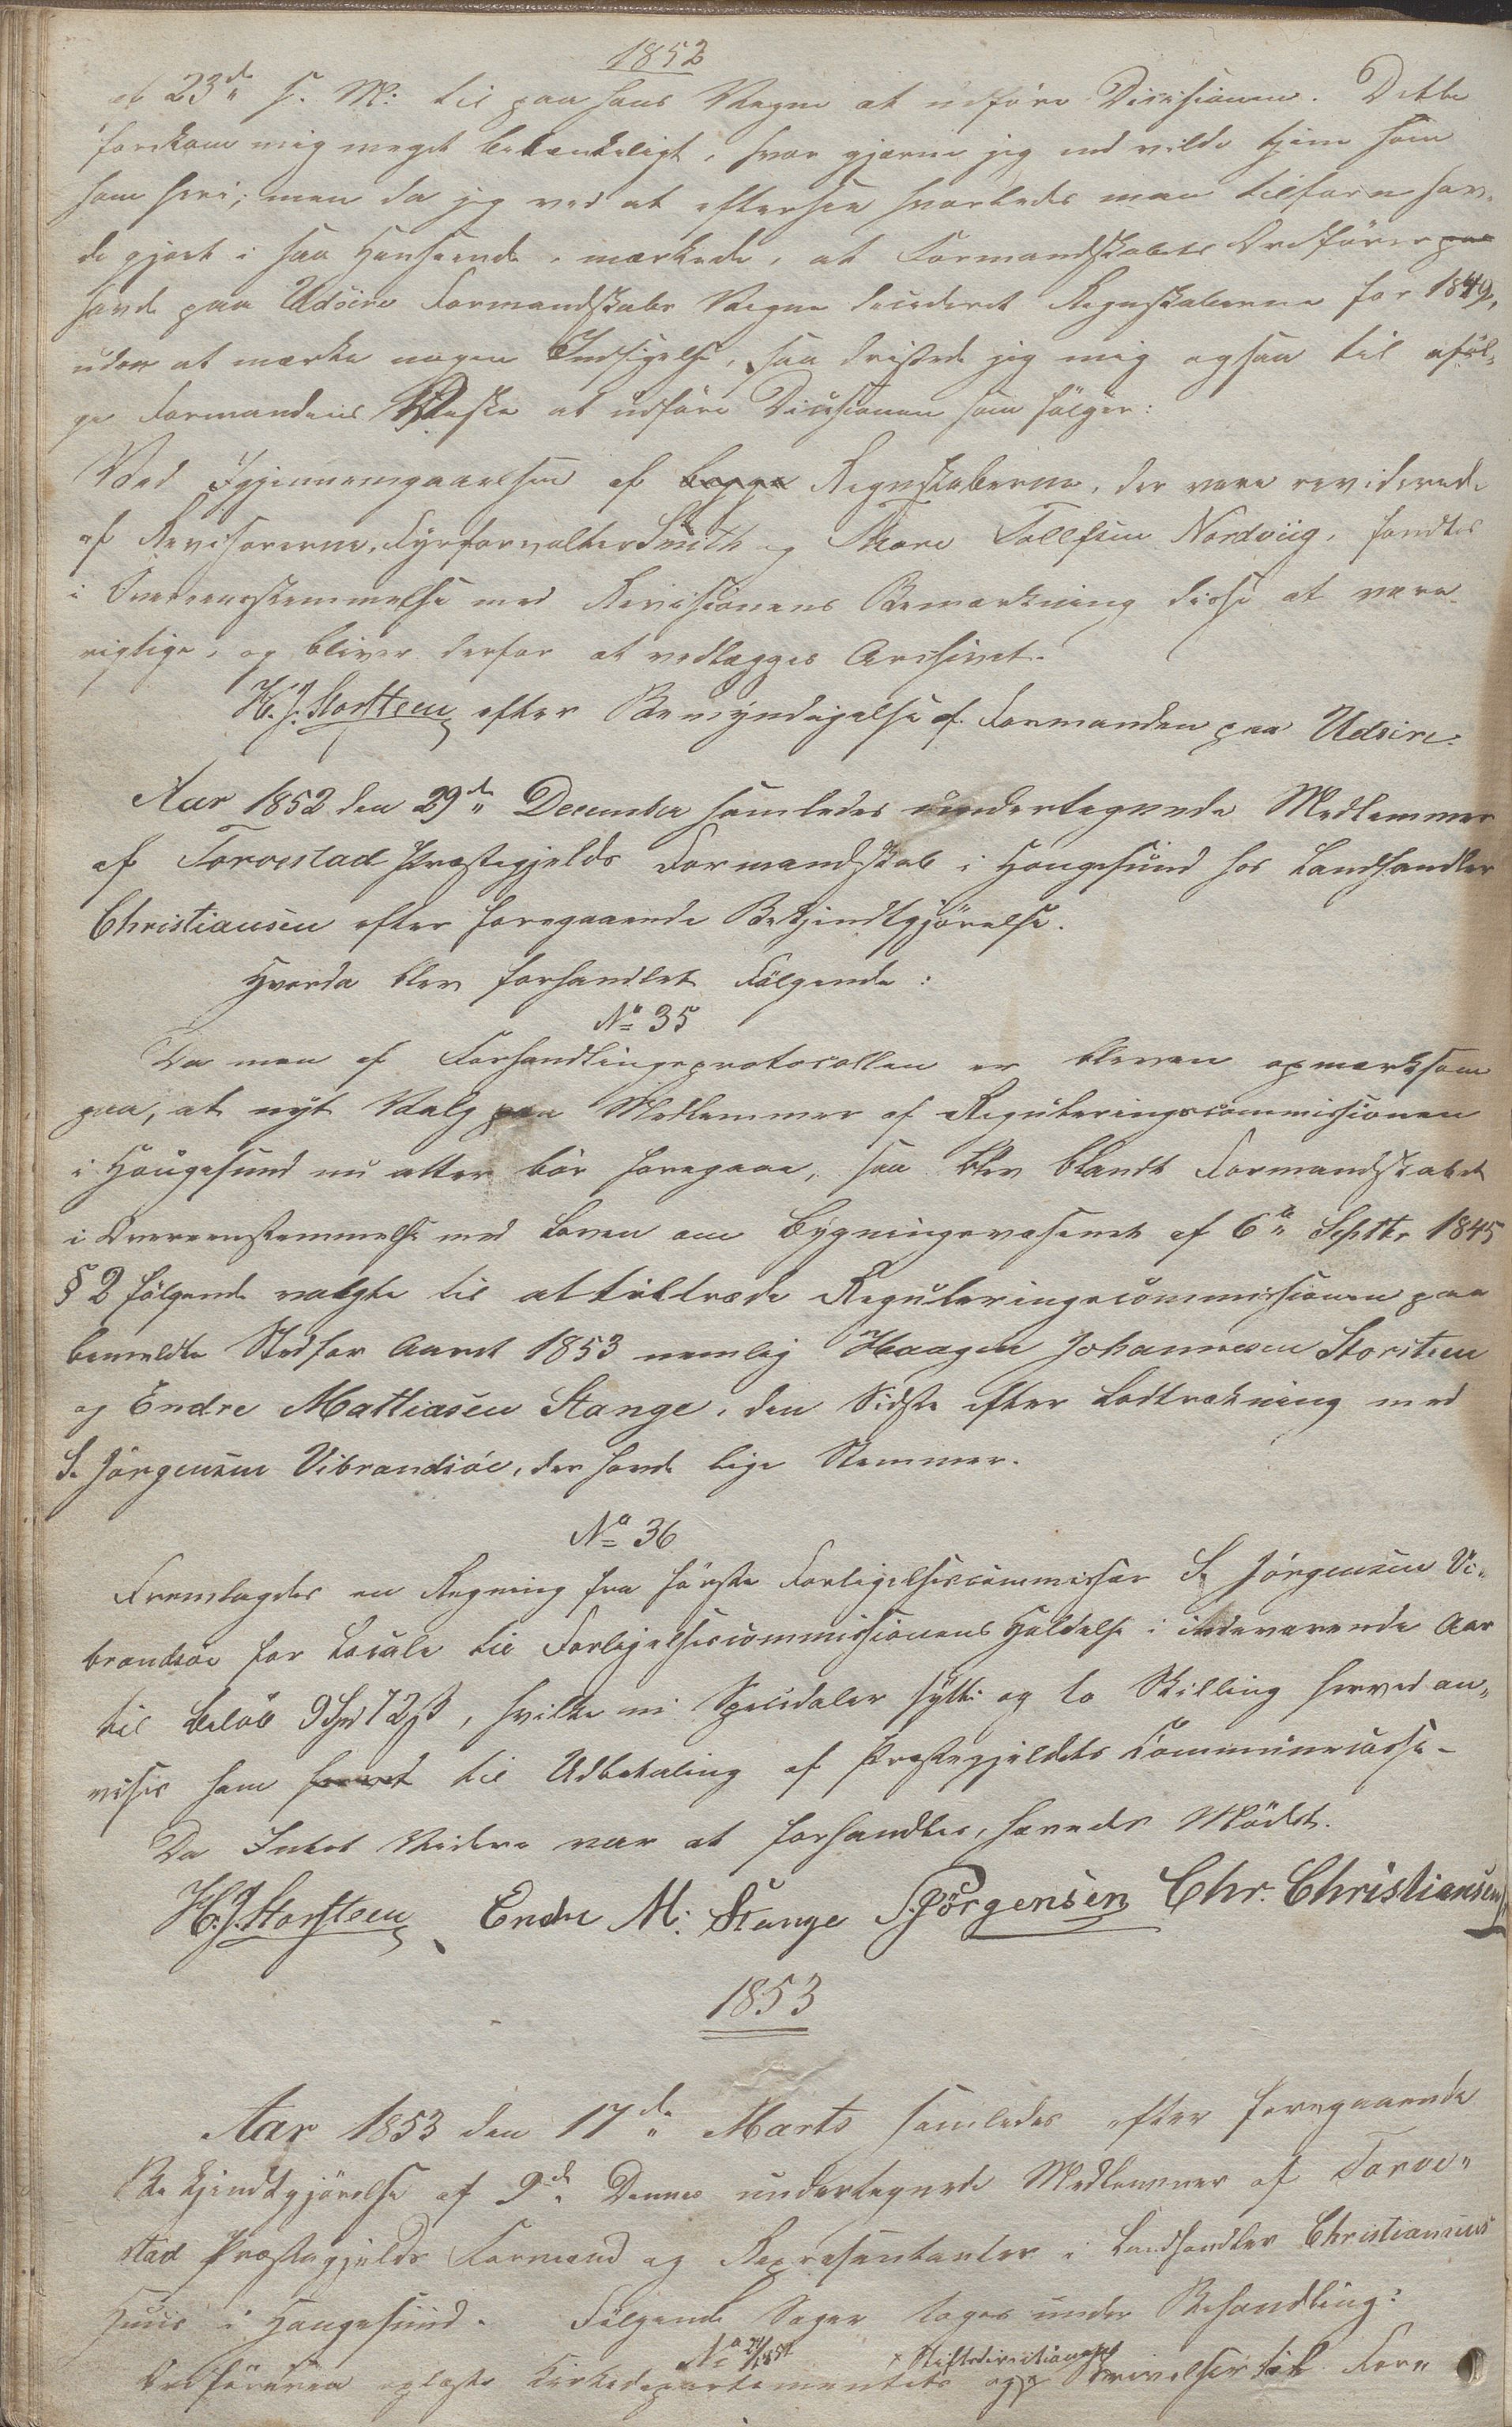 1852
af 23de s. M: til paa hans Vegne at udføre Decisionen. Dette
forekom mig meget betænkeligt, hvor gjerne jeg end vilde tjene ham
som heri; men da jeg ved at eftersee hvorledes man tilforn hav-
de gjort i saa Henseende, mærkede, at Formandskabets Ordfører paa
havde paa Udsire Formandskabs Vegne decideret Regnskaberne for 1849,
uden at mærke nogen Indsigelse, saa dristede jeg mig ogsaa til iføl-
ge Formandens Ønske at udføre Decisionen som følger:
Ved Igjennemgaaelsen af begge Regnskaberne, der vare reviderede
af Revisorerne, Fyrforvalter Smith og Thore Tollefsen Nordviig, fandtes
i Overeensstemmelse med Revisionens Bemærkning disse at være
rigtige, og bliver derfor at vedlægges Archivet.
H. J. Storsteen efter Bemyndigelse af Formanden paa Udsire.
Aar 1852 den 29de December samledes undertegnede Medlemmer
af Torvestad Præstegjelds Formandskab i Hougesund hos Landhandler
Christiansen efter foregaaende Bekjendtgjørelse.
Hvorda blev forhandlet Følgende:
No 35
Da man af Forhandlingsprotocollen er bleven opmærksom
paa, at nyt Valg paa Medlemmer af Reguleringscommissionen
i Hougesund nu atter bør foregaae, saa blev blandt Formandskabet
i Overeensstemmelse med Loven om Bygningsvæsenet af 6te Septbr 1845
§ 2 følgende valgte til at tiltræde Reguleringscommissionen paa
bemeldte Sted for Aaret 1853 nemlig Haagen Johannesen Storsteen
og Endre Mathiasen Stange, den Sidste efter Lodtrækning med
S. Jørgensen Vibrandsøe, der havde lige Stemmer.
No 36
Fremlagdes en Regning fra første Forligelsescommissær S. Jørgensen Vi-
brandsøe for Locale til Forligelsescommissionens Holdelse i indeværende Aar
til Beløb 9 Spd 72 ß, hvilke ni Speciedaler sytti og to Skilling herved an-
vises ham herved til Udbetaling af Præstegjeldets Communecasse.
Da Intet Videre var at forhandles, hævedes Mødet.
H. J. Storsteen Endre M: Stange S. Jørgensen Chr. Christiansen
1853
Aar 1853 den 17de Marts samledes efter foregaaende
Bekjendtgjørelse af 9de Dennes undertegnede Medlemmer af Torve-
stad Præstegjelds Formænd og Repræsentanter i Landhandler Christiansens
Huus i Hougesund. Følgende Sager toges under Behandling:
No
× Stiftsdirectionens
Ordføreren oplæste Kirkedepartementets og × Skrivelser til For-